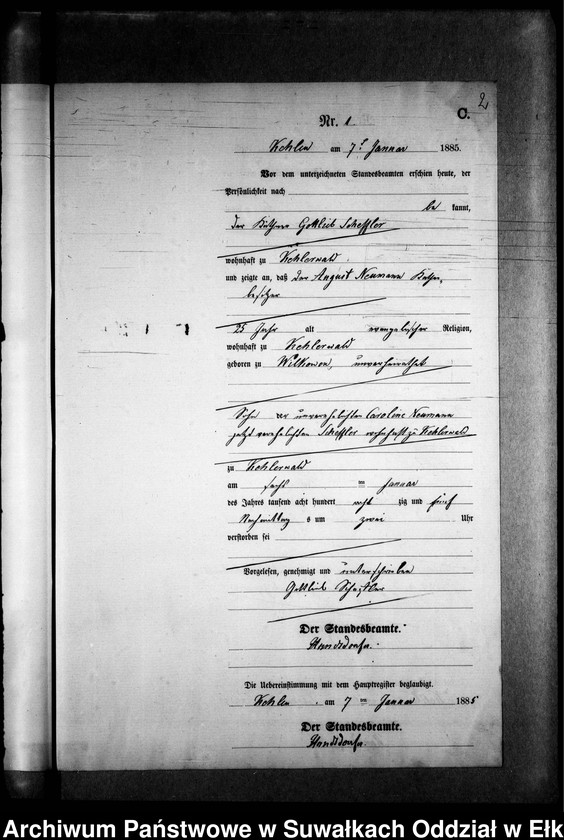 2
C.
Nr. 1
Kehlen am 7t Januar 1885.
Vor dem unterzeichneten Standesbeamten erschien heute, der
Persönlichkeit nach
be kannt,
der Käthner Gottlieb Scheffler
wohnhaft zu Kehlerwald
und zeigte an, daß der August Neumann Kathen,
besitzer
25 Jahr alt evangelischer Religion,
wohnhaft zu Kehlerwald
geboren zu Wilkowen, unverheirathet
Sohn der unverehelichten Caroline Neumann
jetzt verehelichten Scheffler wohnhaft zu Kehlerwald
zu Kehlerwald
am sechs ten Januar
des Jahres tausend acht hundert acht zig und fünf
Nachmittag s um zwei Uhr
verstorben sei
Vorgelesen, genehmigt und unterschrieben
Gottlieb Scheffler
Der Standesbeamte.
Die Uebereinstimmung mit dem Hauptregister beglaubigt.
Kehlen am 7 ten Januar 1885
Der Standesbeamte.
Archiwum Państwowe w Suwałkach Oddział w Ełk